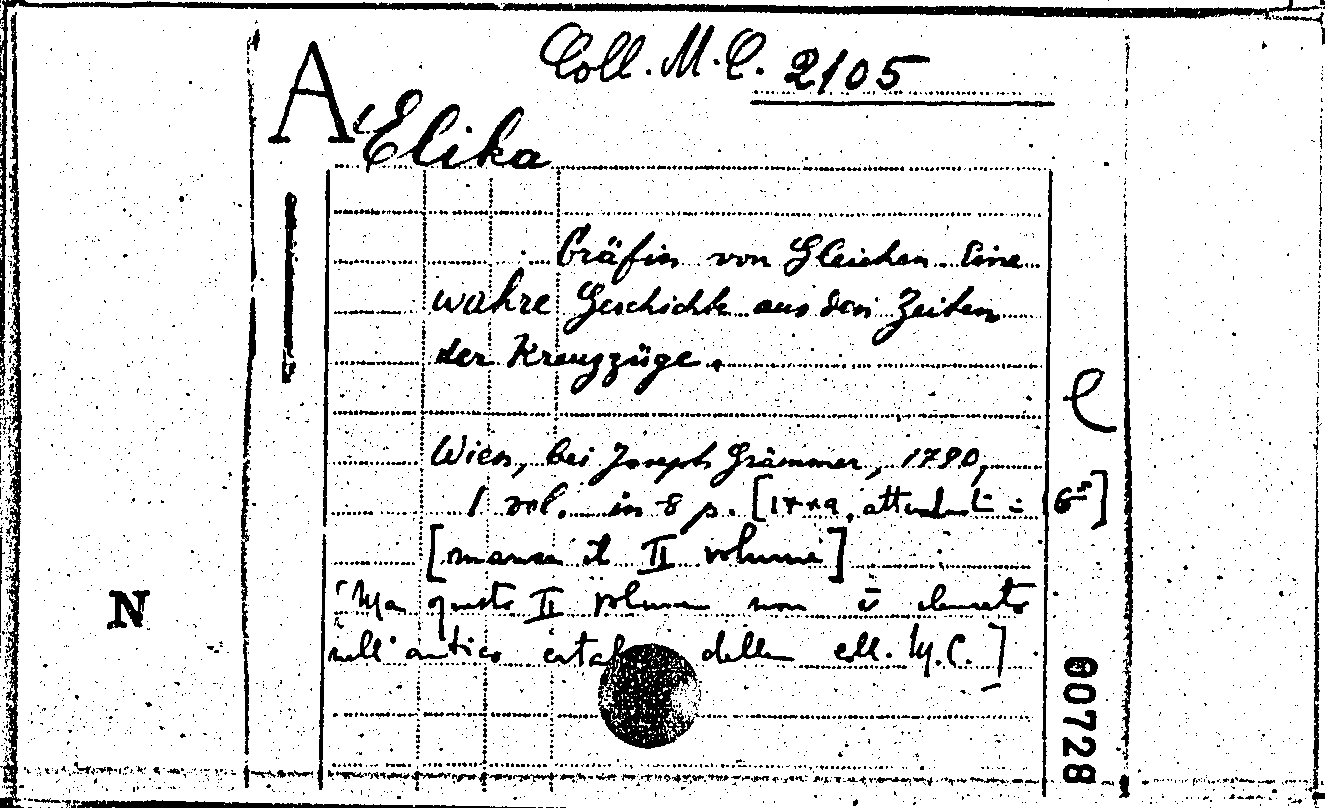 Coll. M. C. 2105
A
Elika
Gräfin von Gleichen. Eine
wahre Geschichte aus den Zeiten
der Kreuzzüge.
Wien, bei Joseph Grämmer, 1790,
1 vol. in-8 p.
[manca il II volume]
Ma questo II volume non è
nell'antico della coll. M.C.]
N
e
00728